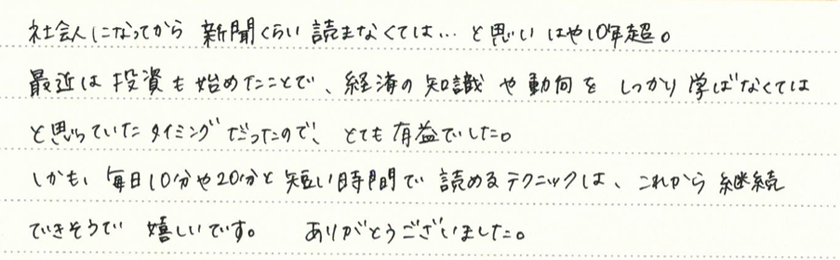 社会人になってから 新聞くらい 読まなくては… と思い はや10年超。
最近は 投資も 始めたことで、経済の 知識 や 動向を しっかり 学ばなくては
と思っていた タイミング だったので、 とても 有益でした。
しかも、毎日10分や20分と 短い時間で 読めるテクニックは、これから 継続
できそうで 嬉しいです。 ありがとうございました。